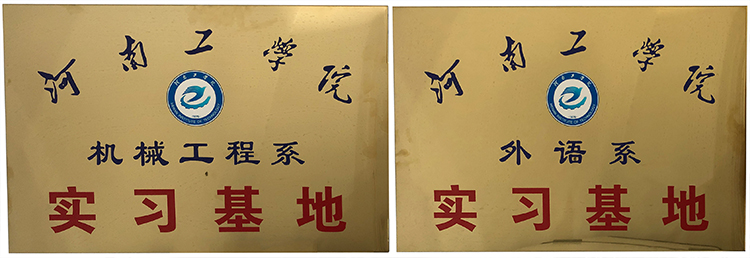 河南工学院
机械工程系
实习基地
河南工学院
外语系
实习基地